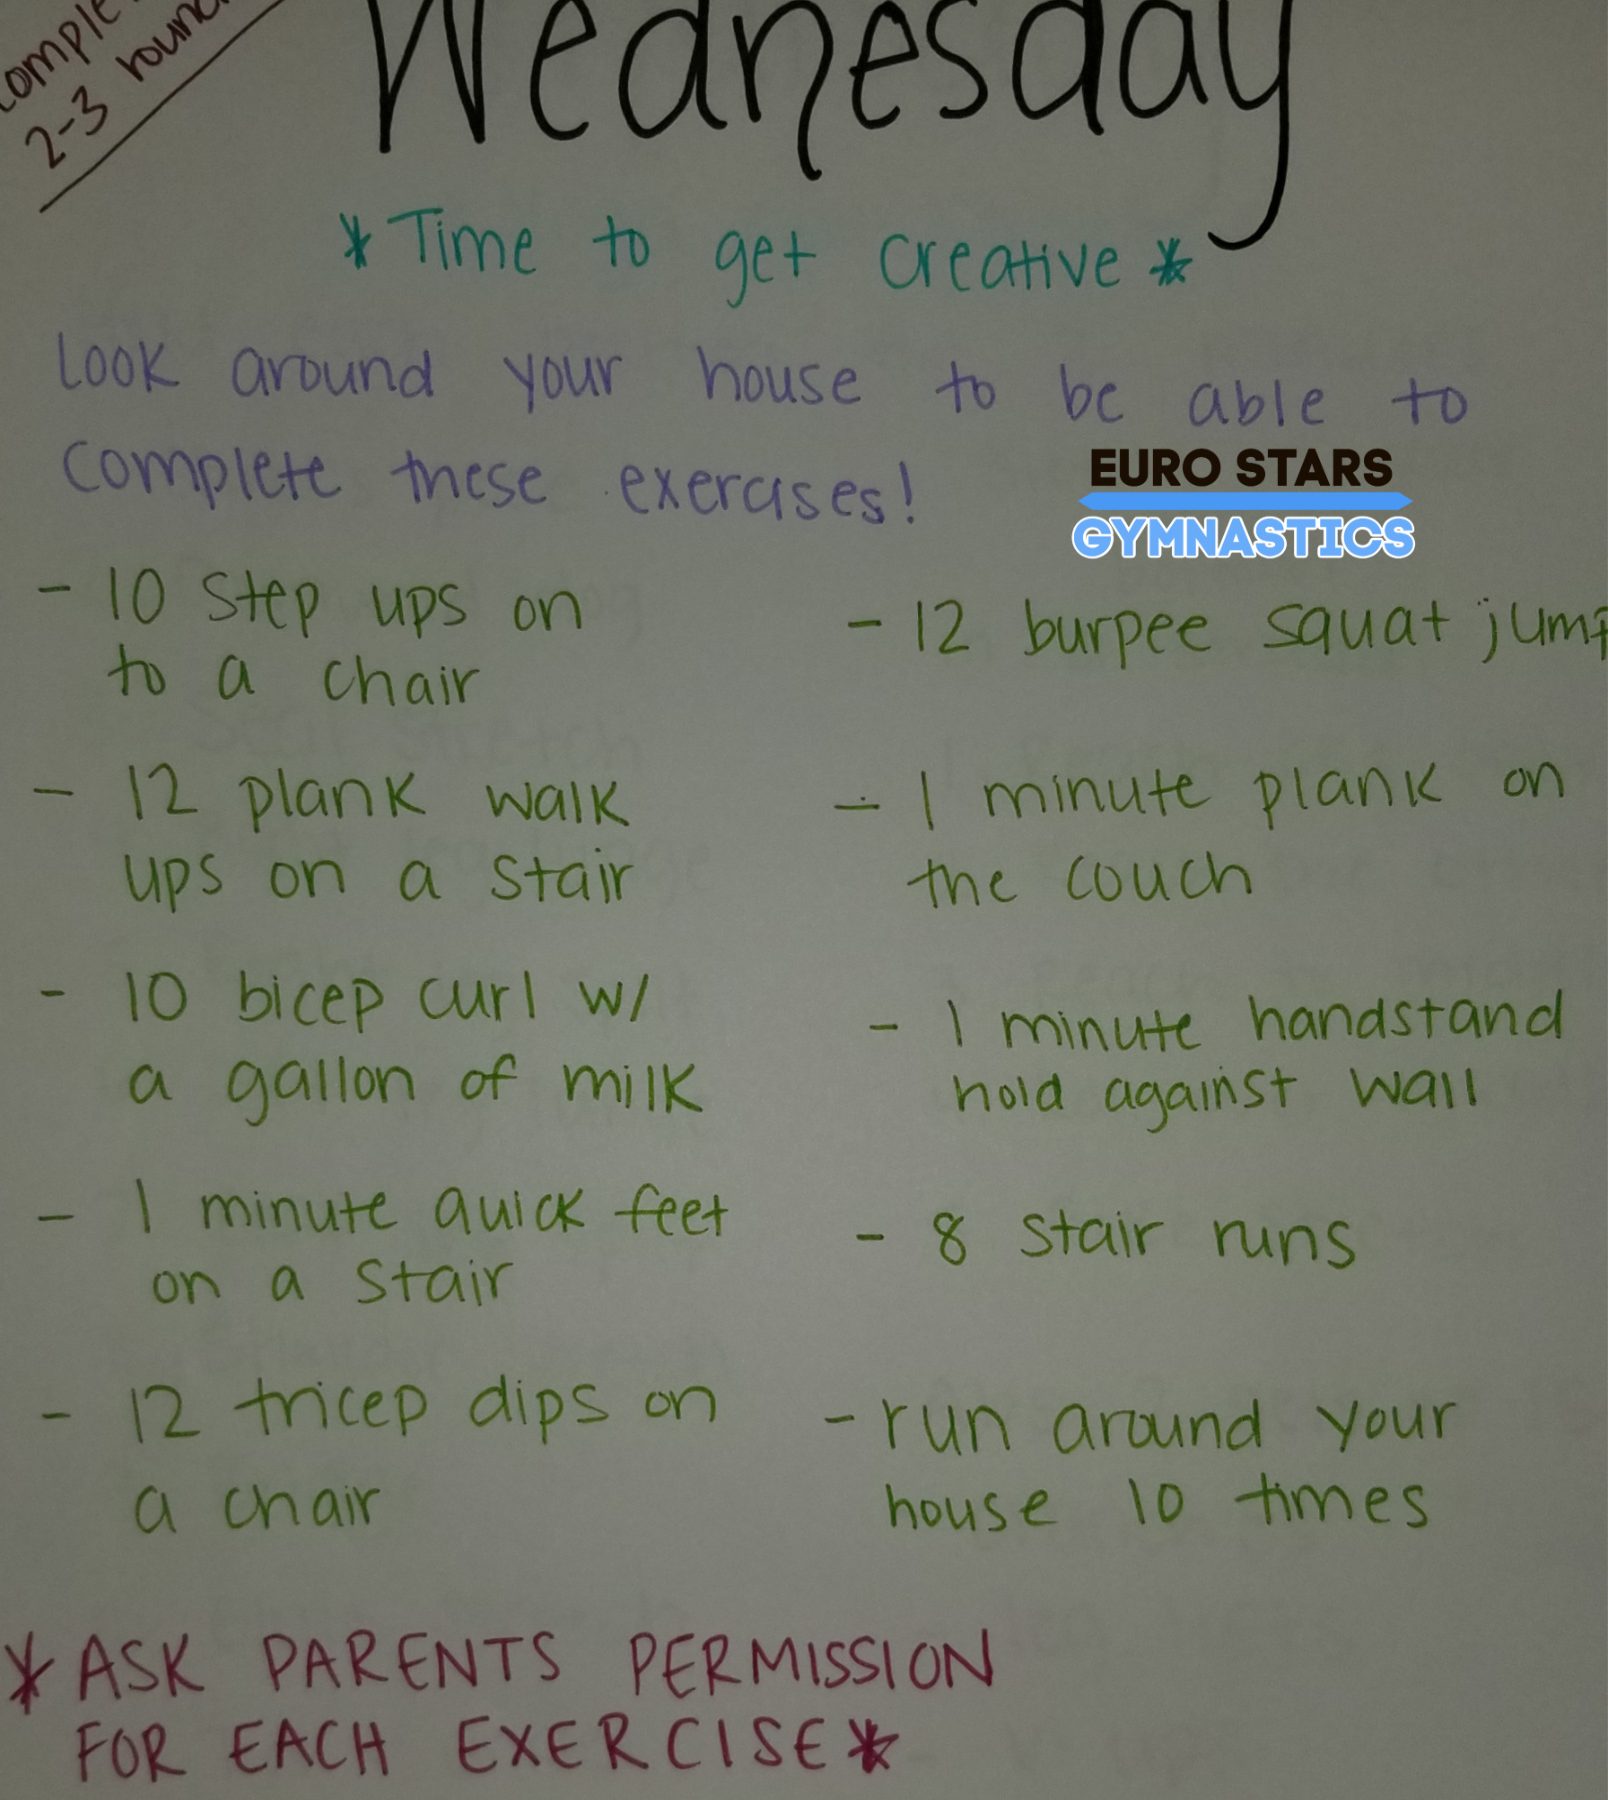 2-3
Wednesday
*Time to get creative*
Look around your house to be able to
complete these exercises!
EURO STARS
GYMNASTICS
- 10 step ups on
to a chair
- 12 plank walk
ups on a stair
- 10 bicep curl w/
a gallon of milk
- 1 minute quick feet
on a stair
- 12 tricep dips on
a chair
- 12 burpee squat jump
- 1 minute plank on
the couch
- 1 minute handstand
hold against wall
- 8 stair runs
- run around your
house 10 times
*ASK PARENTS PERMISSION
FOR EACH EXERCISE*